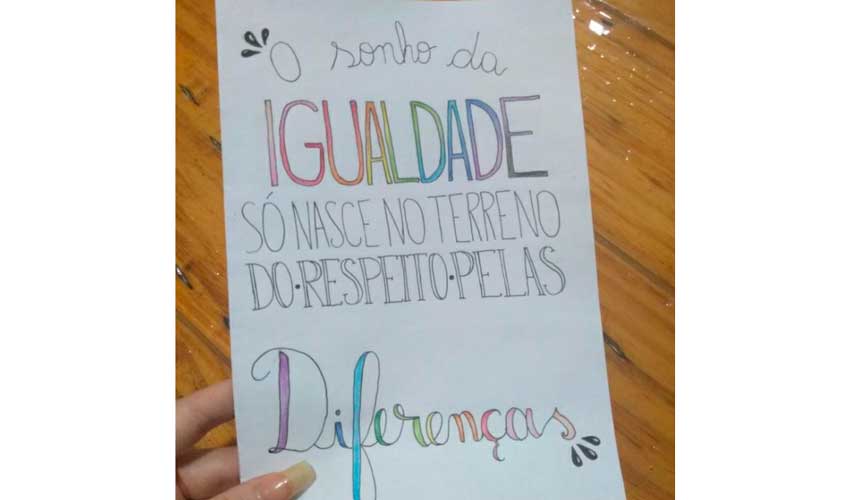 O sonho da
IGUALDADE
SÓ NASCE NO TERRENO
DO·RESPEITO·PELAS
Diferenças